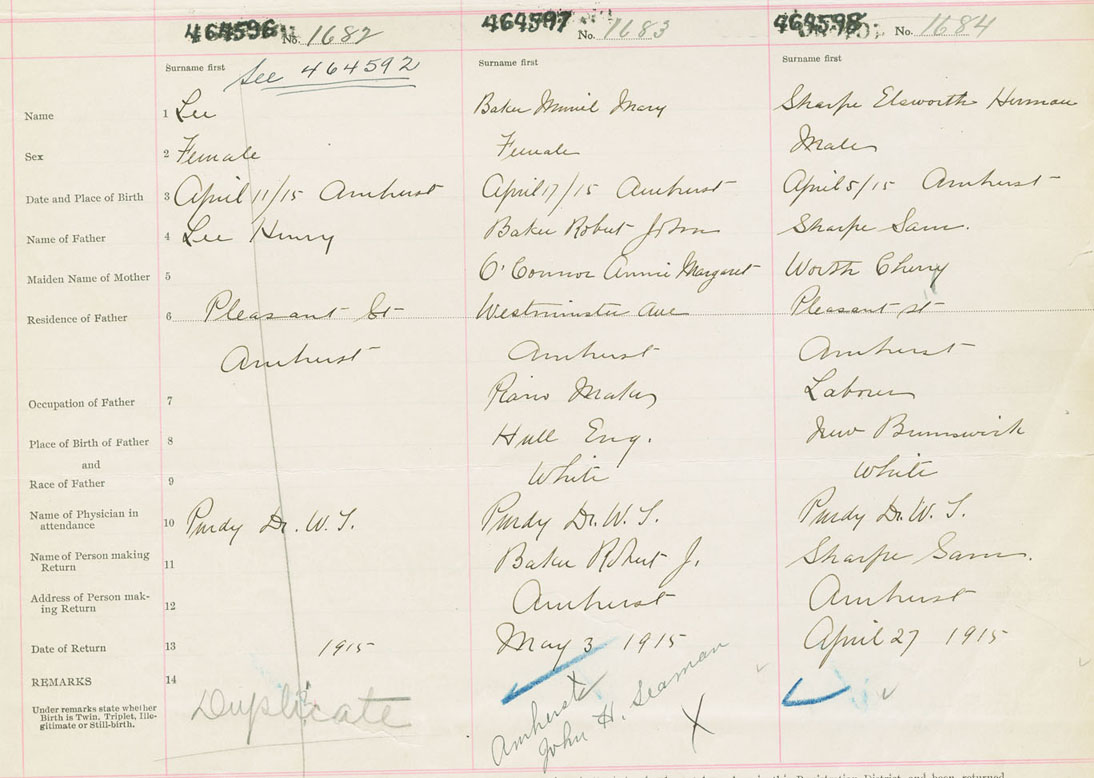 464596 No. 1682
464597 No. 1683
464598 No. 1684
Surname first
See 464592
Surname first
Surname first
Name 1 Lee
Baker Mary
Sharpe Elsworth Herman
Sex 2 Female
Female
Male
Date and Place of Birth 3 April 11/15 Amherst
April 17/15 Amherst
April 5/15 Amherst
Name of Father 4 Lee Henry
Baker Robert John
Sharpe Sam.
Maiden Name of Mother 5
O'Connor Annie Margaret
Worth Cherry
Residence of Father 6 Pleasant St
Westminster Ave
Pleasant st
Amherst
Amherst
Amherst
Occupation of Father 7
Piano Maker
Labourer
Place of Birth of Father 8
Hull Eng.
New Brunswick
and
Race of Father 9
White
White
Name of Physician in
attendance 10 Purdy Dr. W. T.
Purdy Dr. W. T.
Purdy Dr. W. T.
Name of Person making
Return 11
Baker Robert J.
Sharpe Sam.
Address of Person mak-
ing Return 12
Amherst
Amherst
Date of Return 13 1915
May 3 1915
April 27 1915
REMARKS 14
Under remarks state whether
Birth is Twin, Triplet, Ille-
gitimate or Still-birth.
Duplicate
Amherst
John H. Seaman
X